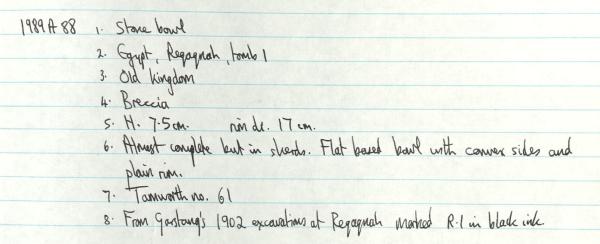 1989 A 88 1. Stone bowl
2. Egypt, Reqaqnah, tomb 1
3. Old Kingdom
4. Breccia
5. H. 7.5 cm. rim di. 17 cm.
6. Almost complete but in sherds. Flat based bowl with convex sides and
plain rim.
7. Tamworth no. 61
8. From Garstang's 1902 excavations at Reqaqnah marked R.1 in black ink.